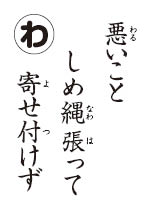 わ
悪いこと
しめ縄張って
寄せ付けず
わる
なわ
は
よ
つ